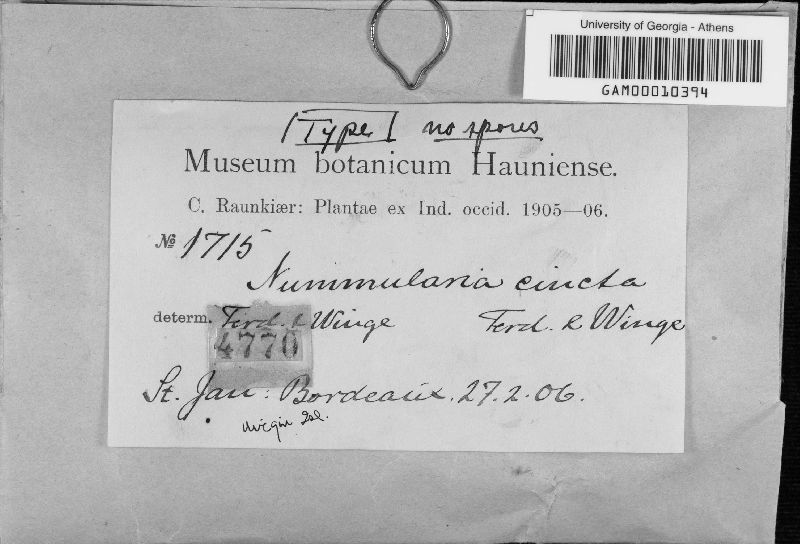 University of Georgia - Athens
GAM00010394
[Type] no spores
Museum botanicum Hauniense.
C. Raunkiær: Plantae ex Ind. occid. 1905—06.
№ 1715
Nummularia cincta
determ. Ferd. & Winge Ferd. & Winge
4770
St. Jan: Bordeaux. 27.2.06.
Virgin Isl.